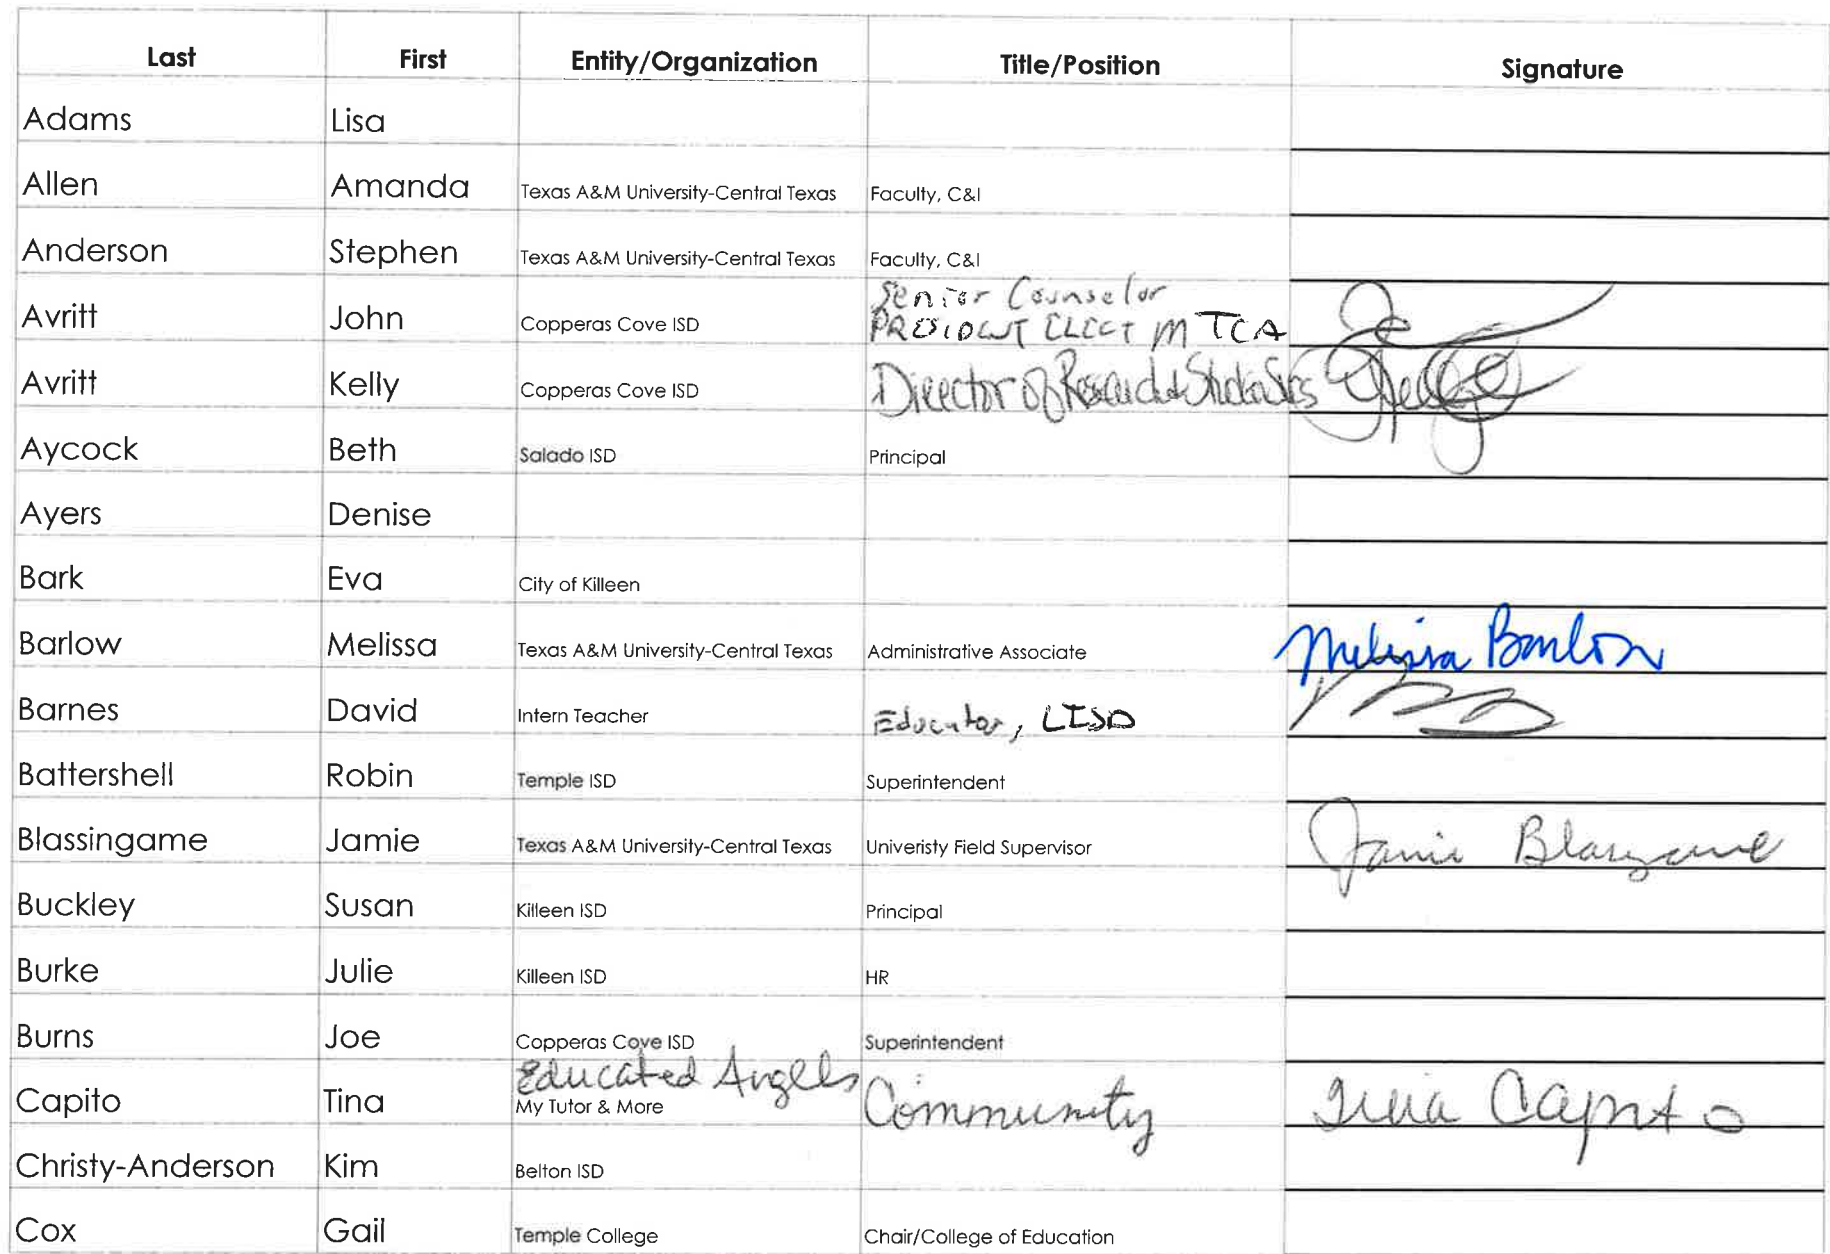 Last First Entity/Organization Title/Position Signature
Adams Lisa
Allen Amanda Texas A&M University-Central Texas Faculty, C&I
Anderson Stephen Texas A&M University-Central Texas Faculty, C&I
Senior Counselor
Avritt John Copperas Cove ISD PRESIDENT ELECT MTCA
Avritt Kelly Copperas Cove ISD Director of
Aycock Beth Salado ISD Principal
Ayers Denise
Bark Eva City of Killeen
Barlow Melissa Texas A&M University-Central Texas Administrative Associate Melissa Barlow
Barnes David Intern Teacher Educator, LISD
Battershell Robin Temple ISD Superintendent
Blassingame Jamie Texas A&M University-Central Texas Univeristy Field Supervisor Jamie Blassingame
Buckley Susan Killeen ISD Principal
Burke Julie Killeen ISD HR
Burns Joe Copperas Cove ISD Superintendent
Educated Angels
Capito Tina My Tutor & More Community Tina Capito
Christy-Anderson Kim Belton ISD
Cox Gail Temple College Chair/College of Education